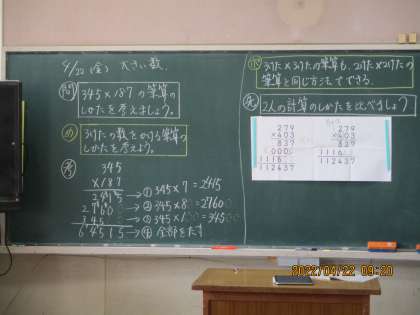 4/22(金) 大きい数
問 345×187の筆算の
しかたを考えましょう。
め 3けたの数をかける筆算の
しかたを考えよう。
考
345
×187
2415 → ① 345×7=2415
2760 → ② 345×80=27600
345 → ③ 345×100=34500
64515 → ④ 全部をたす
3けた×3けたの筆算も、2けた×2けたの
筆算と同じ方法でできる。
2人の計算のしかたを比べましょう
279
×403
837
000
1116
112437
279
×403
837
1116
112437
2022/04/22 09:20